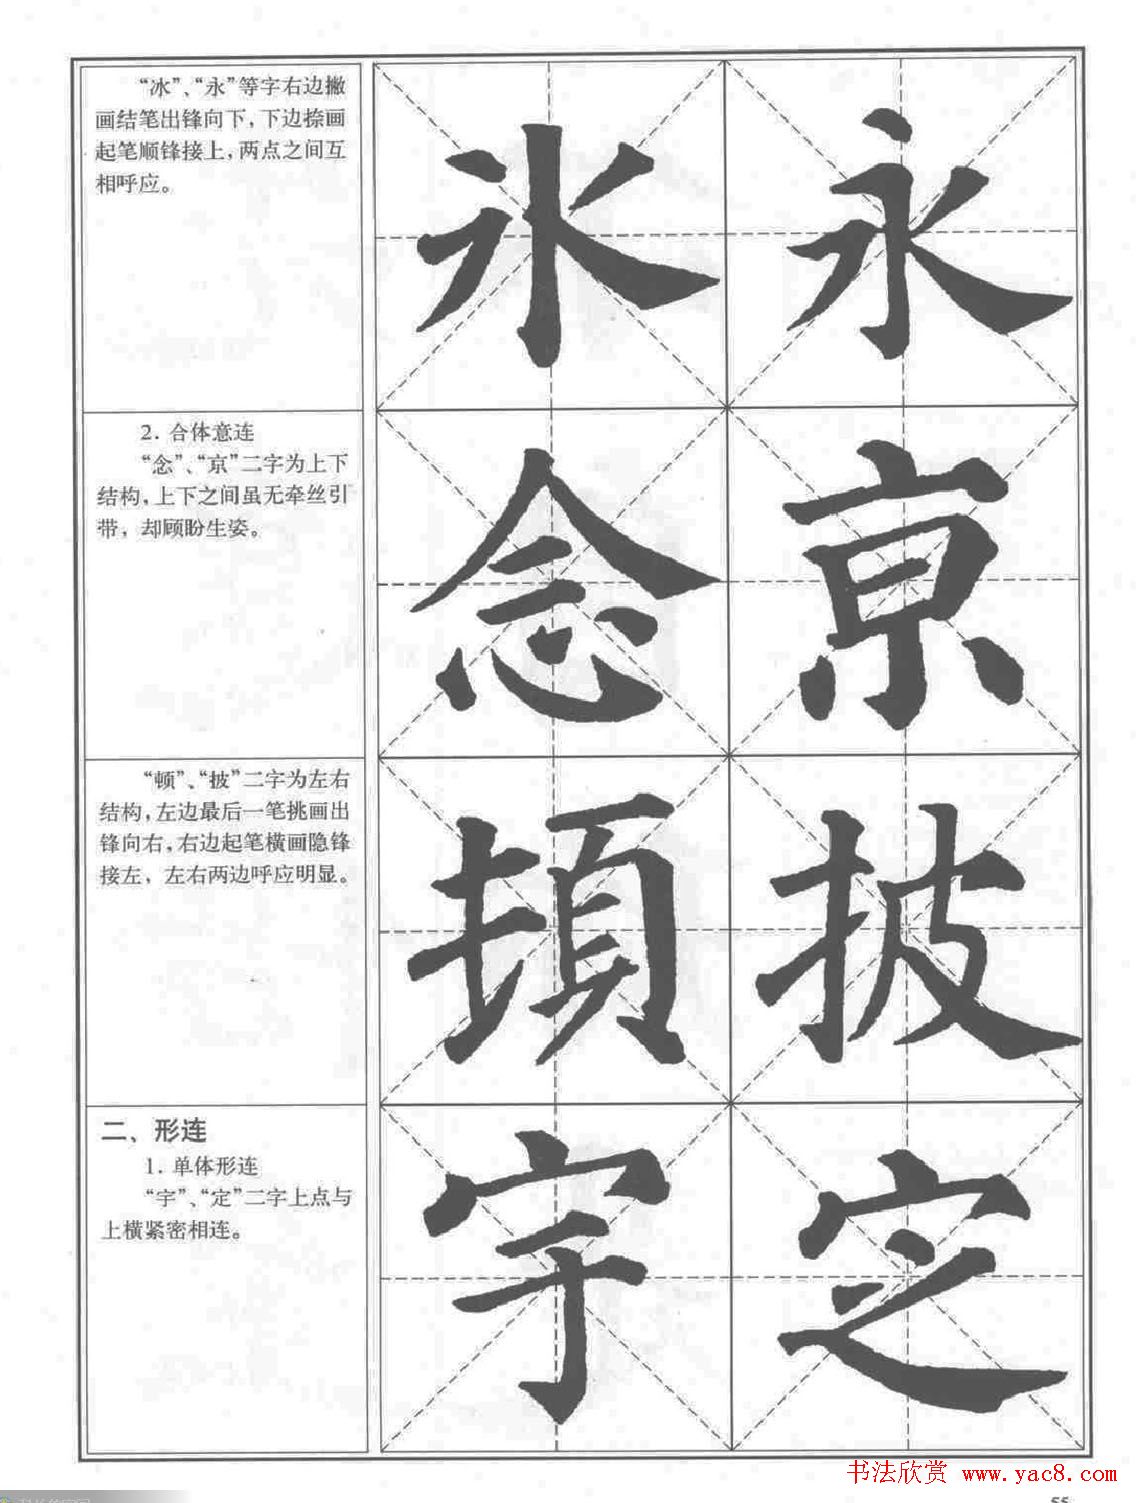 “冰”、“永”等字右边撇
画结笔出锋向下，下边捺画
起笔顺锋接上，两点之间互
相呼应。
氷 永
2. 合体意连
“念”、“京”二字为上下
结构，上下之间虽无牵丝引
带，却顾盼生姿。
念 京
“顿”、“披”二字为左右
结构，左边最后一笔挑画出
锋向右，右边起笔横画隐锋
接左，左右两边呼应明显。
頓 披
二、形连
1. 单体形连
“宇”、“定”二字上点与
上横紧密相连。
宇 定
书法欣赏 www.yac8.com
55